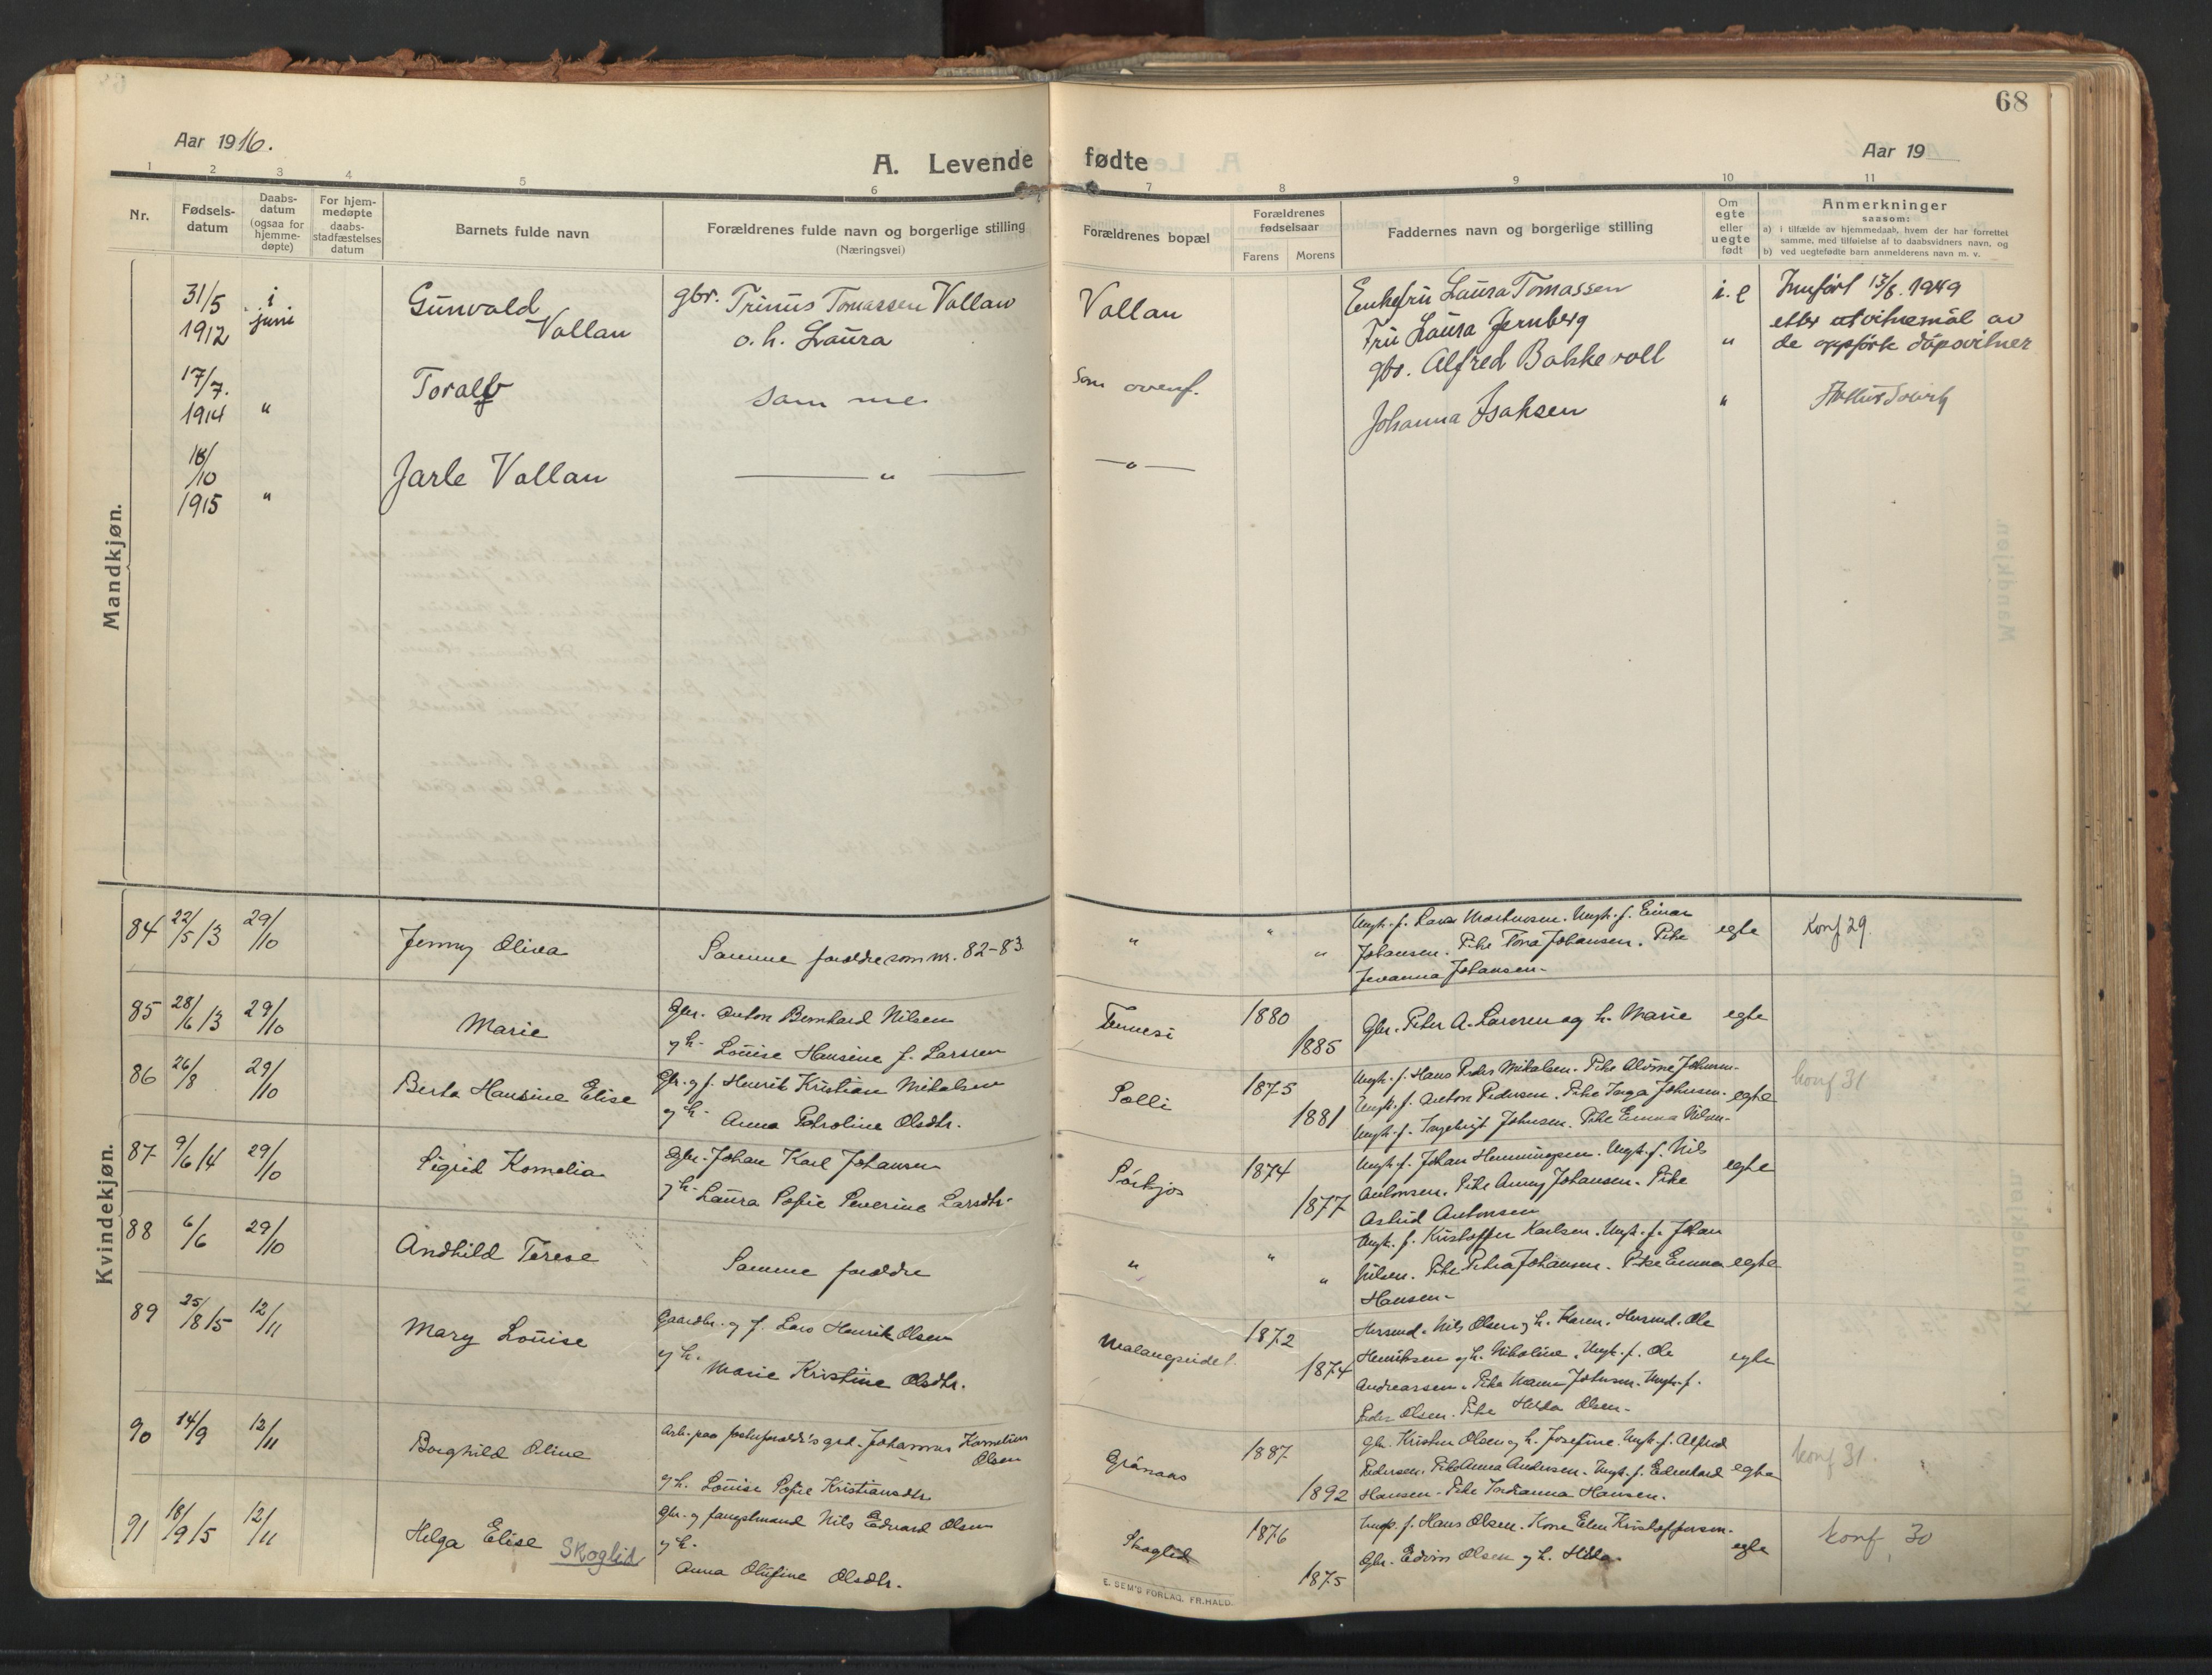 68
Aar 1916.
A. Levende fødte
Aar 19
1 2 3 4 5 6 7 8 9 10 11
Nr.
Fødsels-
datum
Daabs-
datum
(ogsaa for
hjemme-
døpte)
For hjem-
medøpte
daabs-
stadfæstelses
datum
Barnets fulde navn
Forældrenes fulde navn og borgerlige stilling
(Næringsvei)
Forældrenes bopæl
Forældrenes
fødselsaar
Farens Morens
Faddernes navn og borgerlige stilling
Om
egte
eller
uegte
født
Anmerkninger
saasom:
a) i tilfælde av hjemmedaab, hvem der har forrettet
samme, med tilføielse af to daabsvidners navn, og
b) ved uegtefødte barn anmelderens navn m. v.
Mandkjøn.
31/5
1912
i
juni
Gunvald
Vollan
gbr. Trinus Tomassen Vollan
o. h. Laura
Vollan
Enkefru Laura Tomassen
Fru Laura Jernberg
gbr. Alfred Bakkevoll
Johanna Isaksen
i. e
"
"
Innført 13/8. 1949
etter utvitnemål av
de oppførte dåpsvitner
17/7.
1914
"
Toralf
Samme
Som ovenf.
18/10
1915
"
Jarle Vollan
— " —
— " —
Kvindekjøn.
84 22/5 13 29/10 Jenny Oliva
Samme forældre som nr. 82-83
" " "
Ungk. f. Lars Mortensen. Ungk. f. Einar
Johansen. Pike Tona Johansen. Pike
Jovanna Johansen-
egte
Konf 29
85 28/6 13 29/10 Marie
Gbr. Anton Bernhard Nilsen
og h. Louise Hansine f. Larssen
1880
1885
Gbr. Peter A. Larssen og h. Marie
egte
86 26/8 29/10 Berta Hansine Elise
Gbr. og f. Henrik Kristian Mikalsen
og h. Anna Petroline Olsdtr.
Solli
1875
1881
Ungk. f. Hans Peder Mikalsen. Pike Alvine Johnsen-
Ungk. f. Anton Pedersen. Pike Inga Johnsen-
Ungk. f. Ingebrigt Johnsen. Pike Emma Nilsen-
egte
konf 31
87 9/6 14 29/10 Sigrid Kornelia
Gbr. Johan Karl Johansen
og h. Laura Sofie Severine Larsdtr.
1874
1877
Ungk. f. Johan Henningsen. Ungk. f. Nils
Antonsen. Pike Anny Johansen. Pike
Astrid Antonsen
egte
88 6/6 29/10 Andhild Terese
Samme forældre
" " "
Ungk. f. Kristoffer Karlsen. Ungk. f. Johan
Nilsen. Pike Petra Johansen. Pike Emma
Hansen-
egte
89 25/8 15 12/11 Mary Louise
Gaardbr. og f. Lars Henrik Olsen
og h.
Marie Kristine Olsdtr.
Malangseidet.
1872
1874
Husmd. Nils Olsen og h. Karen. Husmd. Ole
Henriksen og h. Nikoline. Ungk. f. Ole
Andreassen. Pike Johnsen. Ungk. f.
Peder Olsen. Pike Helda Olsen-
egte
90 14/9 12/11 Borghild Oline
Arb. paa fosterforældr's grd. Johannes Kornelius
Olsen
og h. Louise Sofie Kristiansdtr.
Grånaas
1887
1892
Gbr. Kristen Olsen og h. Josefine. Ungk. f. Alfred
Pedersen. Pike Anna Andersen. Ungk. f. Edenhard
Hansen. Pike Indianna Hansen.
egte
konf 31.
91 18/9 15 12/11 Helga Elise Skoglid
Gbr. og fangstmand Nils Edvard Olsen
og h.
Anna Olufine Olsdtr.
Skoglid
1876
1875
Ungk. f. Hans Olsen. Kone Elen Kristoffersen-
Gbr. Edvin Olsen og h. Hilda.
egte
konf 30
E. SEM'S FORLAG, FR.HALD